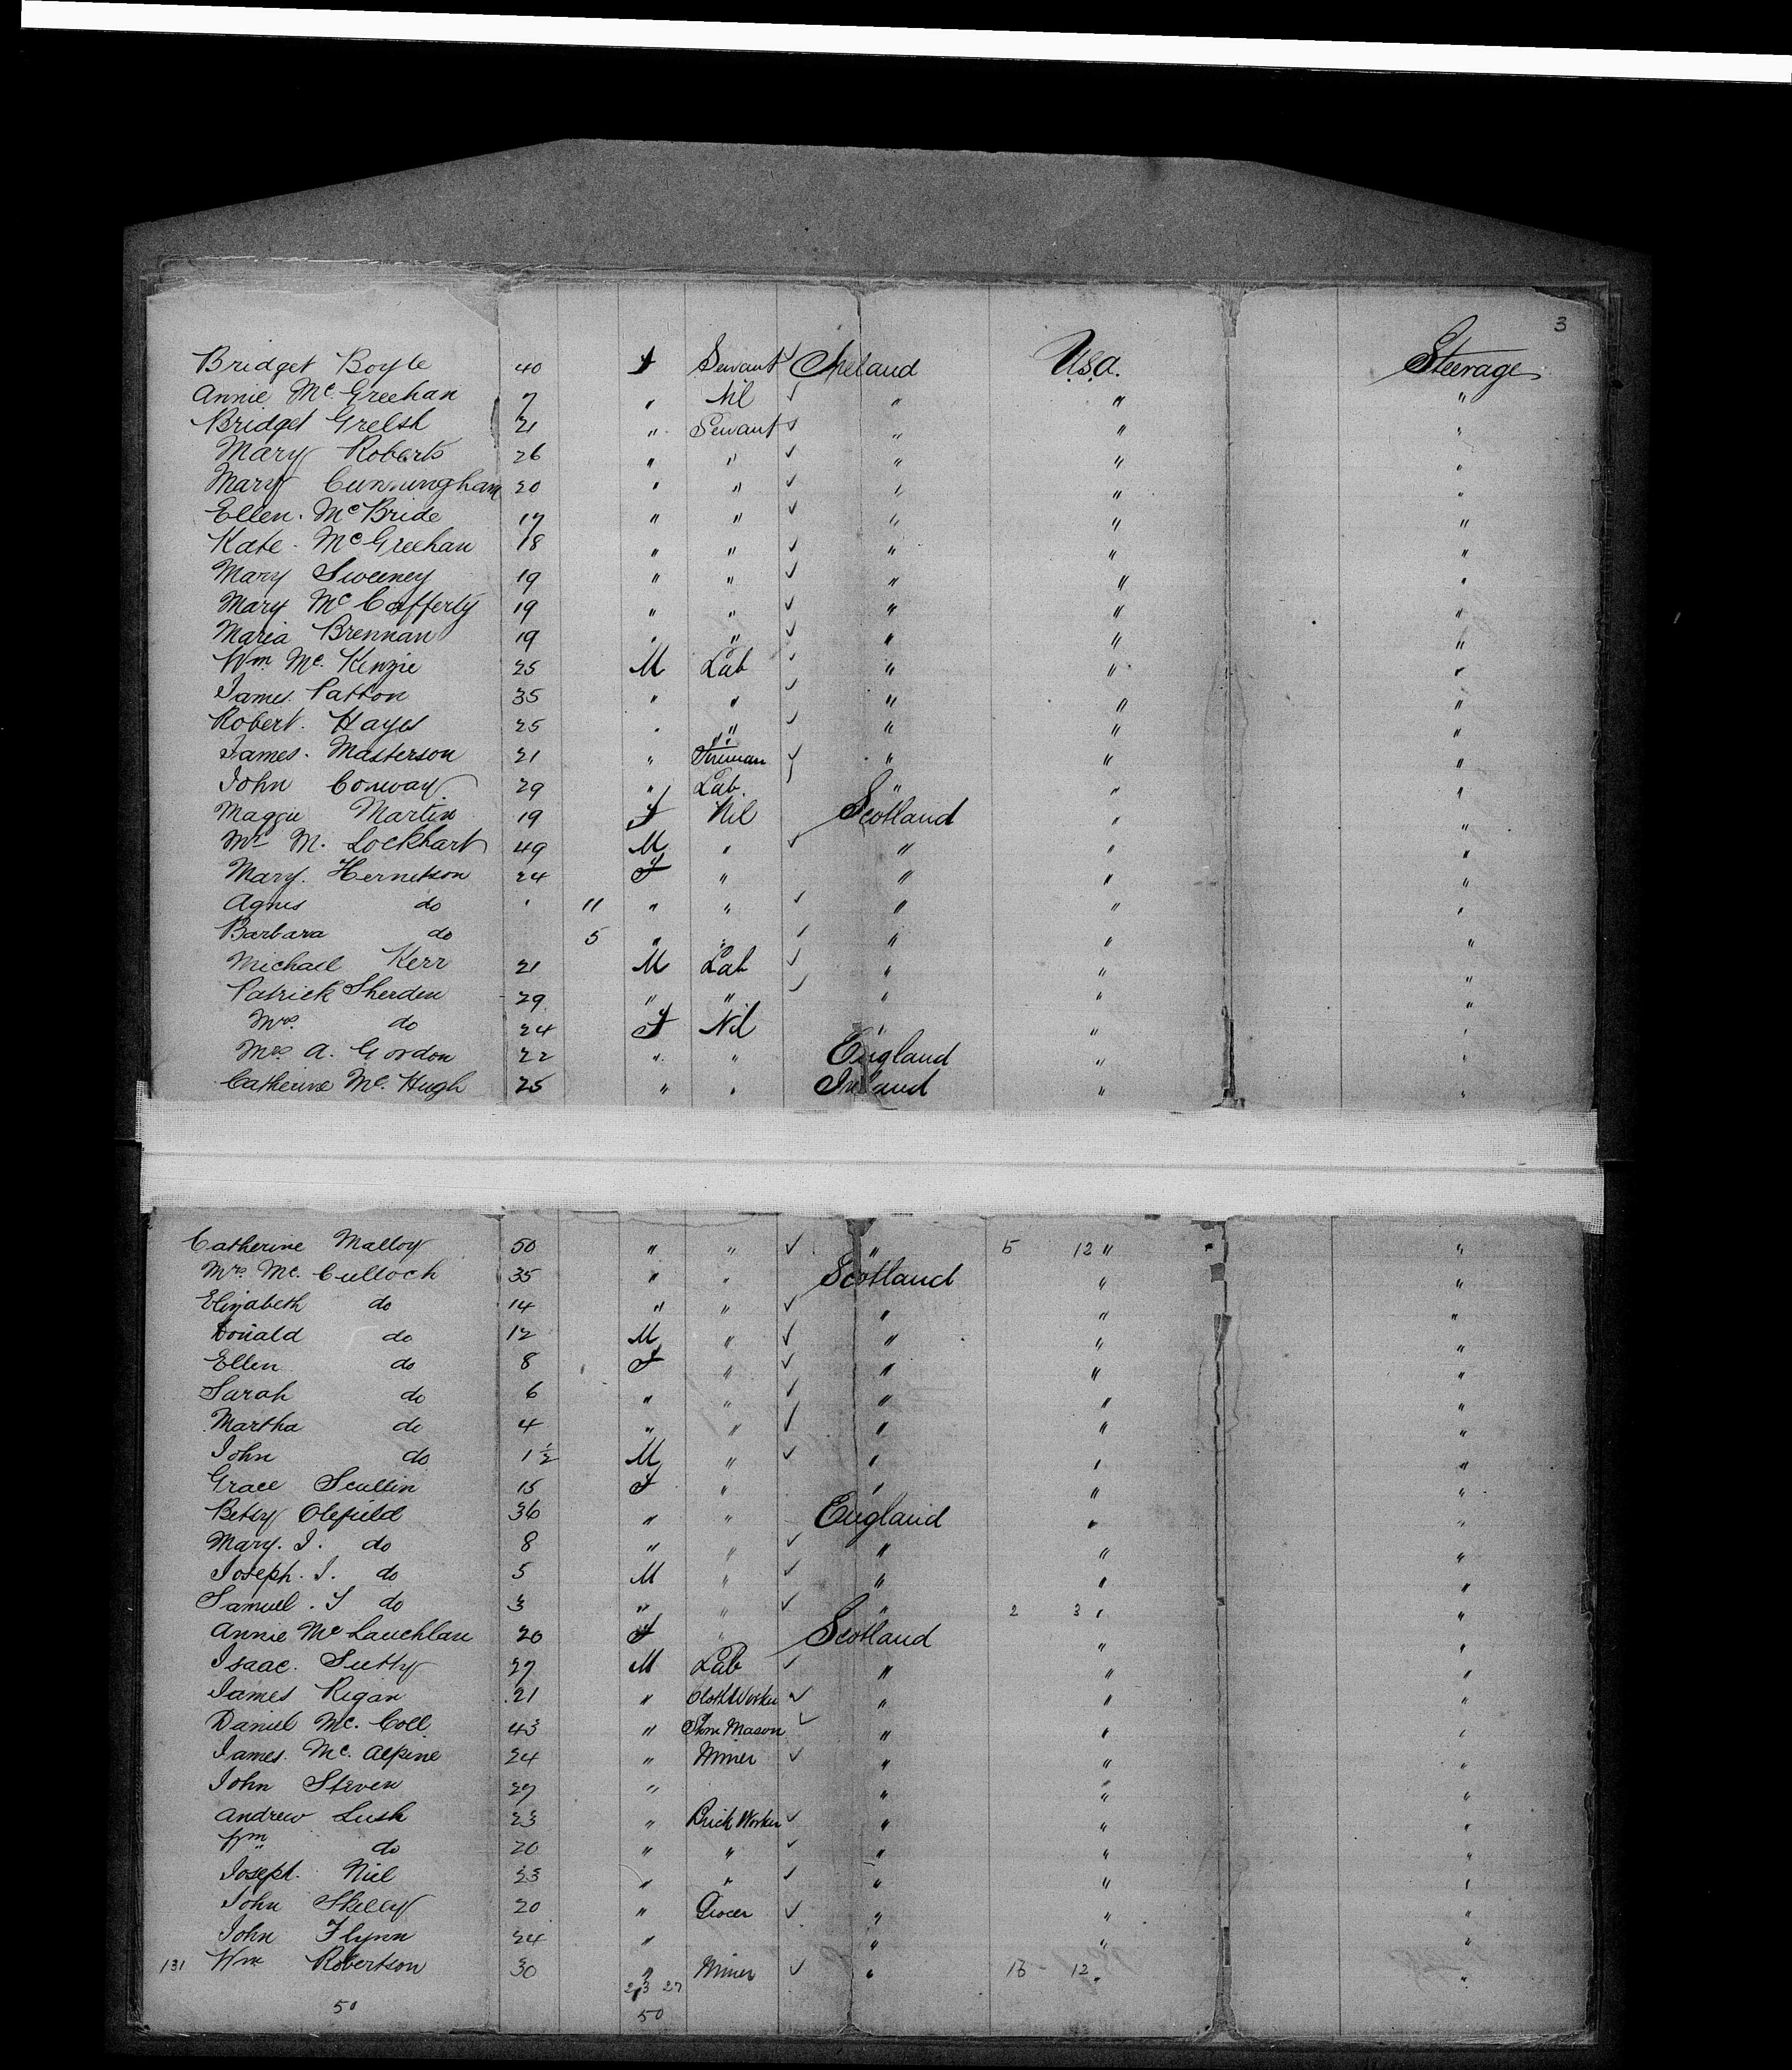 3
Bridget Boyle 40 F Servant ✓ Ireland U.S.A. Steerage
Annie Mc Greehan 7 " Nil ✓ " " "
Bridget Grelsh 21 " Servant ✓ " " "
Mary Roberts 26 " " ✓ " " "
Mary Cunningham 20 " " ✓ " " "
Ellen. Mc Bride 17 " " ✓ " " "
Kate. McGreehan 18 " " ✓ " " "
Mary Sweeney 19 " " ✓ " " "
Mary Mc Cafferty 19 " " ✓ " " "
Maria Brennan 19 " " ✓ " " "
Wm Mc. Kenzie 25 M Lab ✓ " " "
James. Patton 35 " " ✓ " " "
Robert. Hayes 25 " " ✓ " " "
James. Masterson 21 " Fireman ✓ " " "
John Conway 29 " Lab. " " "
Maggie Martin 19 F Nil Scotland " "
Mr M. Lockhart 49 M " ✓ " " "
Mary. Hernetson 24 F " " " "
Agnes do 11 " " ✓ " " "
Barbara do 5 " " ✓ " " "
Michael Kerr 21 M Lab ✓ " " "
Patrick Sherden 29 " " ✓ " " "
Mrs. do 24 F Nil " " "
Mrs A. Gordon 22 " " England " "
Catherine Mc. Hugh 25 " " Ireland " "
Catherine Malloy 50 " " ✓ " 5 12 " "
Mrs. Mc. Culloch 35 " " Scotland " "
Elizabeth do 14 " " ✓ " " "
Donald do 12 M " ✓ " " "
Ellen do 8 F " ✓ " " "
Sarah do 6 " " ✓ " " "
Martha do 4 " " ✓ " " "
John do 1 1/2 M " ✓ " " "
Grace Scullin 15 F " " " "
Betsy Olefield 36 " " England " "
Mary. J. do 8 " " ✓ " " "
Joseph. J. do 5 M " ✓ " " "
Samuel. S do 3 " " ✓ " 2 3 " "
Annie Mc Lauchlan 20 F " Scotland " "
Isaac. Sutty 27 M Lab ✓ " " "
James Regan 21 " Cloth Worker ✓ " " "
Daniel Mc. Coll 43 " Stone Mason ✓ " " "
James. Mc. Alpine 24 " Miner ✓ " " "
John Steven 27 " " " "
Andrew Lush 23 " Brick Worker ✓ " " "
Wm do 20 " " ✓ " " "
Joseph. Niel 23 " " ✓ " " "
John Skelly 20 " Grocer ✓ " " "
John Flynn 24 " " " "
131 Wm Robertson 30 " Miner ✓ " 16 - 12 " "
23 27
50 50